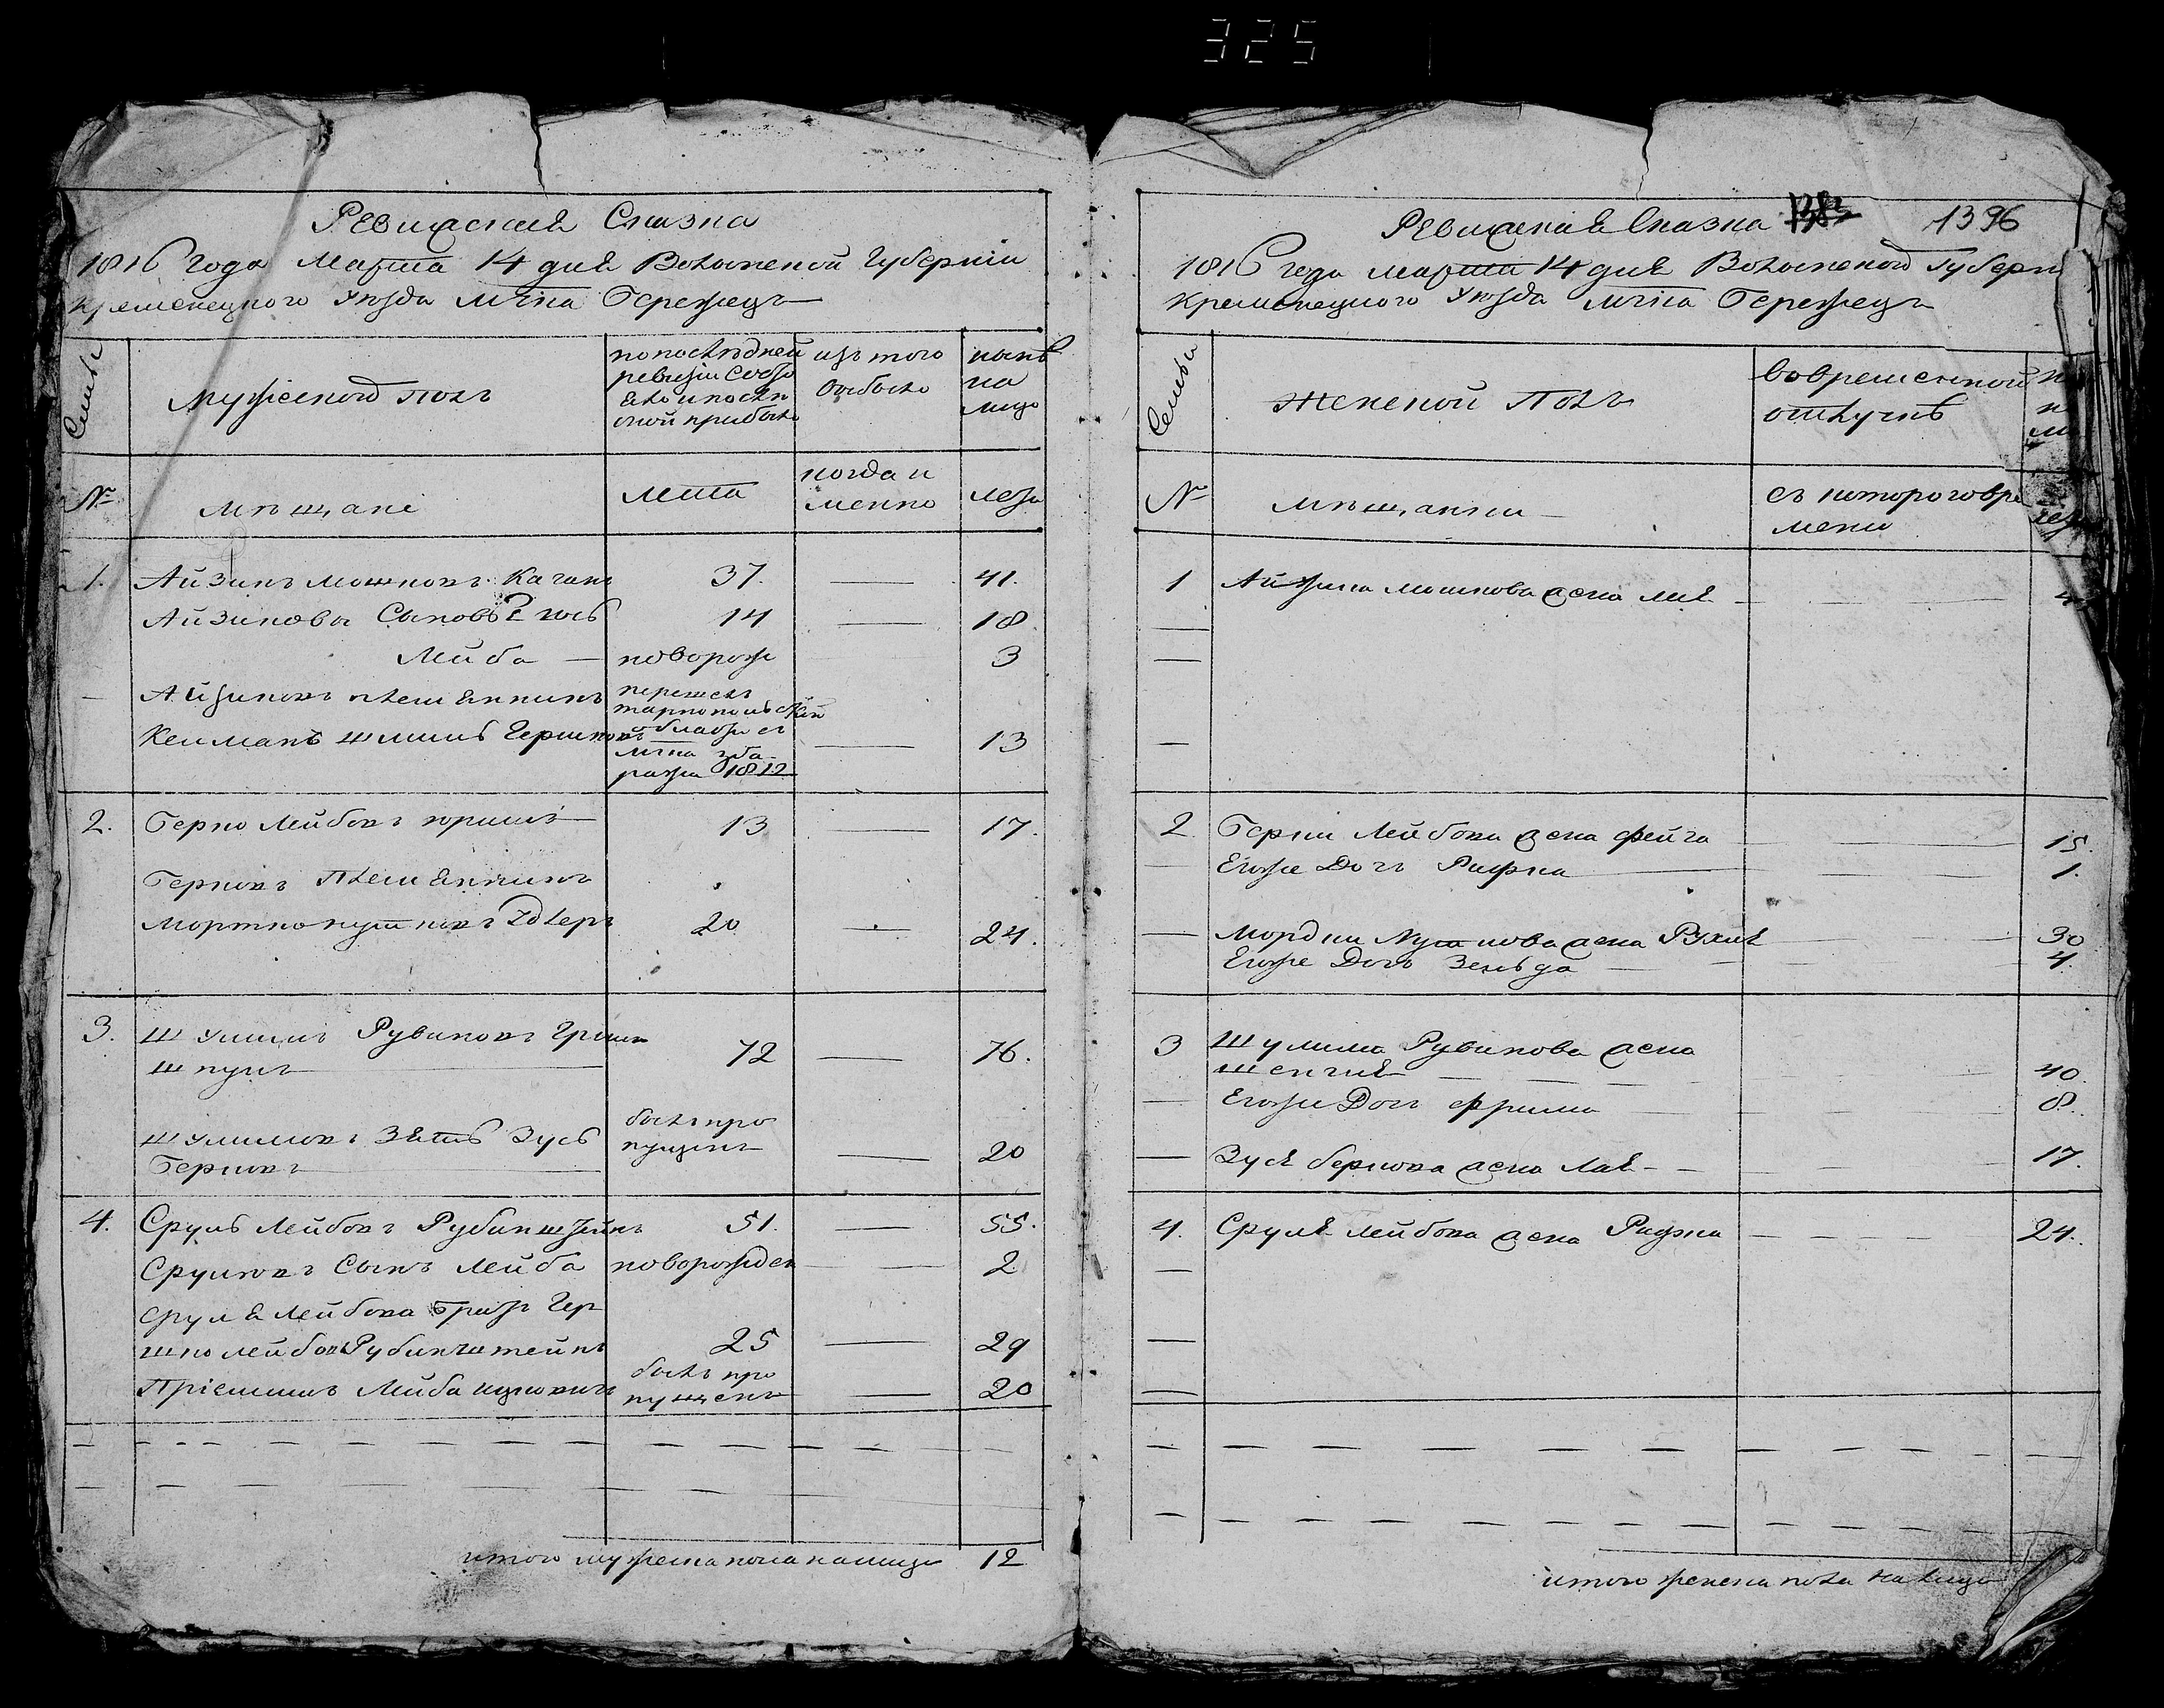 325
Ревижская Сказка
1816 года Марта 14 дня Волынской Губернiи
Кременецкого уезда мчка Бережецъ
Семьи
Мужеской полъ
по последней
ревизiи состо
яло и после
оной прибыло
изъ того
выбыло
ныне
на
лицо
№
мещане
лета
когда и
менно
лета
1. Айзикъ Мошковъ Каганъ 37. — 41.
Айзиковы Сыновья Iось 14 — 18
Лейба — новорож 3
— Айзиковъ племянникъ
Кельманъ Шлиль Гершковъ — 13
перешелъ
тарнопольской
области съ
мчка Зба-
ража 1812
2. Берко Лейбовъ 13 — 17.
Берковъ племянникъ
Мортко нутковъ Адлеръ 20 — 24.
3. Шулимъ Рувиновъ Гринш
шпунъ 72 — 76.
Шулимовъ Зять Зусь былъ про
Берковъ пущенъ — 20
4. Сруль Лейбовъ Рубинштейнъ 51. — 55.
Срулювъ Сынъ Лейба новорожден — 2
Сруля Лейбова братъ Гер
шко Лейбовъ Рубинштейнъ 25 — 29
Прiемышъ Лейба былъ про
пущенъ — 20
итого мужеска пола налицо 12
Ревижская Сказка 1396
1816 года марта 14 дня Волынской Губерн
Кременецкого уезда мчка Бережецъ
Семьи
Женской Полъ
во временной
отлучке
№
мещанки
съ которого вре
мени
1 Айзика Мошкова жена
2. Берки Лейбова жена Фейга 15.
Егоже Дочь Рифка 1.
— Мордки Нуткова жена Рухля 30
Егоже Дочь Зельда 4.
3 Шулима Рувинова жена
Шенгля 40.
— Егоже Дочь Фрима 8.
— Зуся беркова жена Лая — 17.
4. Сруля Лейбова жена Рифка 24.
итого женска пола налицо